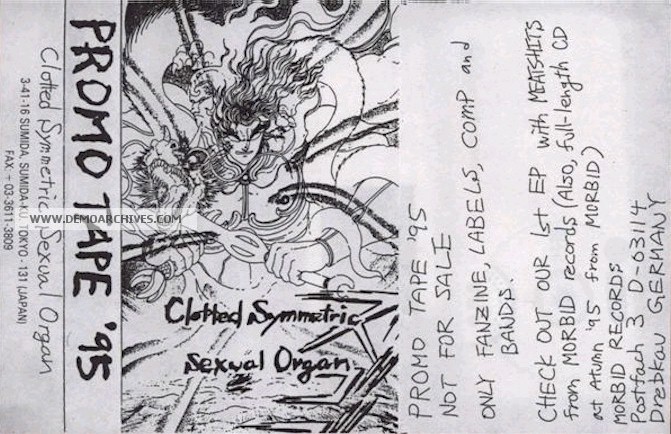 Clotted Symmetric Sexual Organ
3-41-16 SUMIDA, SUMIDA-KU, TOKYO - 131 (JAPAN)
FAX - 03-3611-3809
PROMO TAPE '95
WWW.DEMOARCHIVES.COM
Clotted Symmetric
Sexual Organ
PROMO TAPE '95
NOT FOR SALE
ONLY FANZINE, LABELS, COMP and
BANDS.
CHECK OUT OUR 1st EP with MEATSHITS
from MORBID records (Also, full-length CD
at Atumn '95 from MORBID)
MORBID RECORDS
Postfach 3 D-03114
Drebkau GERMANY